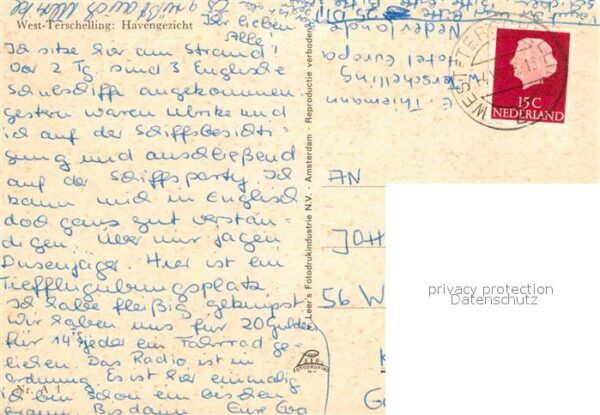 West-Terschelling: Havengezicht
Ihr lieben
Alle!
Ich sitze hier am Strand!
Vor 2 Tg. sind 3 Englische
Schulschiffe angekommen.
gestern waren Ulrike und
ich auf der Schiffsbesichti-
gung und anschließend
auf der Schiffsparty. Ich
kann mich in Englisch
doch ganz gut verstän-
digen. über mir jagen
Düsenjäger. Hier ist ein
Tiefflugübungsplatz.
Ich habe fleißig geknipst
Wir haben uns für 20 Gulden
für 14 jeder ein Fahrrad ge-
liehen. Das Radio ist in
ordnung. Es ist hier einmalig
bin schon ein bischen
braun. Bis dann Eure Eva
Nr. A 1
Leer's Fotodrukindustrie N.V. - Amsterdam - Reproductie verboden
LEER
FOTODRUKIND
N.V.
E. Thiemann
Hotel Europa
W. Terschelling
Nederlande
15 C
NEDERLAND
AN
JOH
56 W
privacy protection
Datenschutz